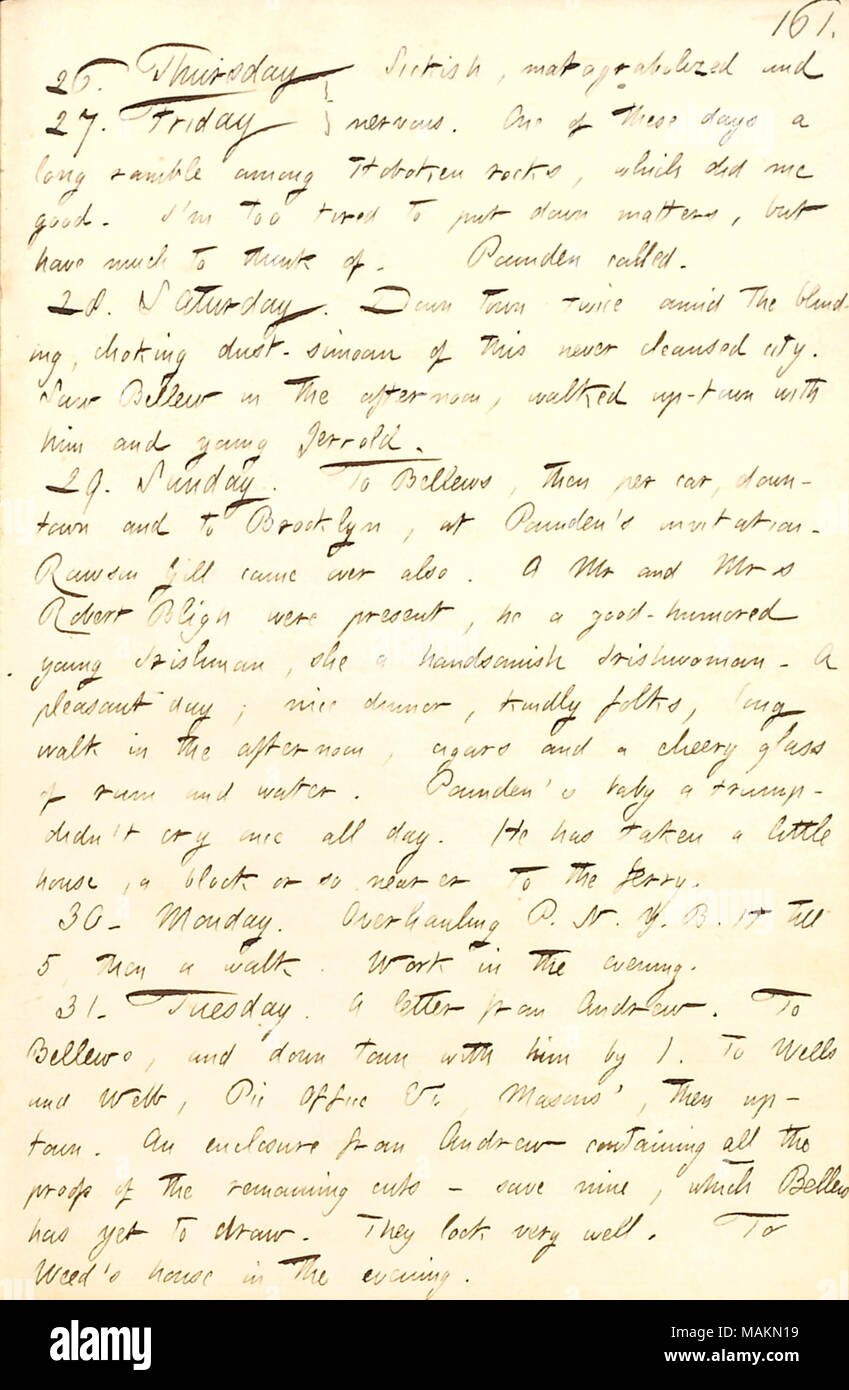 161.
26. Thursday } Sickish, matagrabolized and
27. Friday } nervous. One of these days a
long ramble among Hoboken rocks, which did me
good. I'm too tired to put down matters, but
have much to think of. Pounden called.
28. Saturday. Down town twice amid the blind-
ing, choking dust-simoom of this never cleansed city.
Saw Bellew in the afternoon, walked up-town with
him and young Jerrold.
29. Sunday. To Bellews, then per car, down-
town and to Brooklyn, at Pounden's invitation.
Rawson Gill came over also. A Mr and Mrs
Robert Bligh were present, he a good-humored
young Irishman, she a handsomish Irishwoman. A
pleasant day; nice dinner, kindly folks, long
walk in the afternoon, cigars and a cheery glass
of rum and water. Pounden's baby a trump-
didn't cry once all day. He has taken a little
house, a block or so nearer to the ferry.
30. Monday. Overhauling P. N. Y. B. H till
5, then a walk. Work in the evening.
31. Tuesday. A letter from Andrew. To
Bellews, and down town with him by 1. To Wells
and Webb, Pic Office &c, Masons', then up-
town. An enclosure from Andrew containing all the
proofs of the remaining cuts - save nine, which Bellew
has yet to draw. They look very well. To
Weed's house in the evening.
alamy
Image ID: MAKN19
www.alamy.com